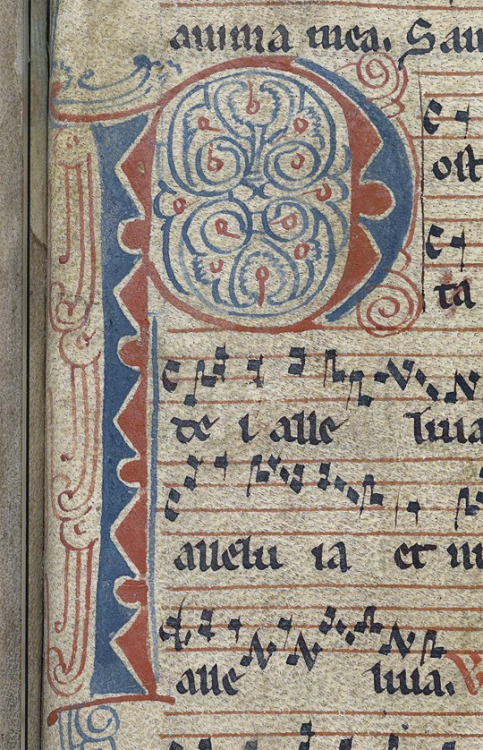 anima mea. San
Post
ta
de i alle luia
allelu ia et
alle luia.